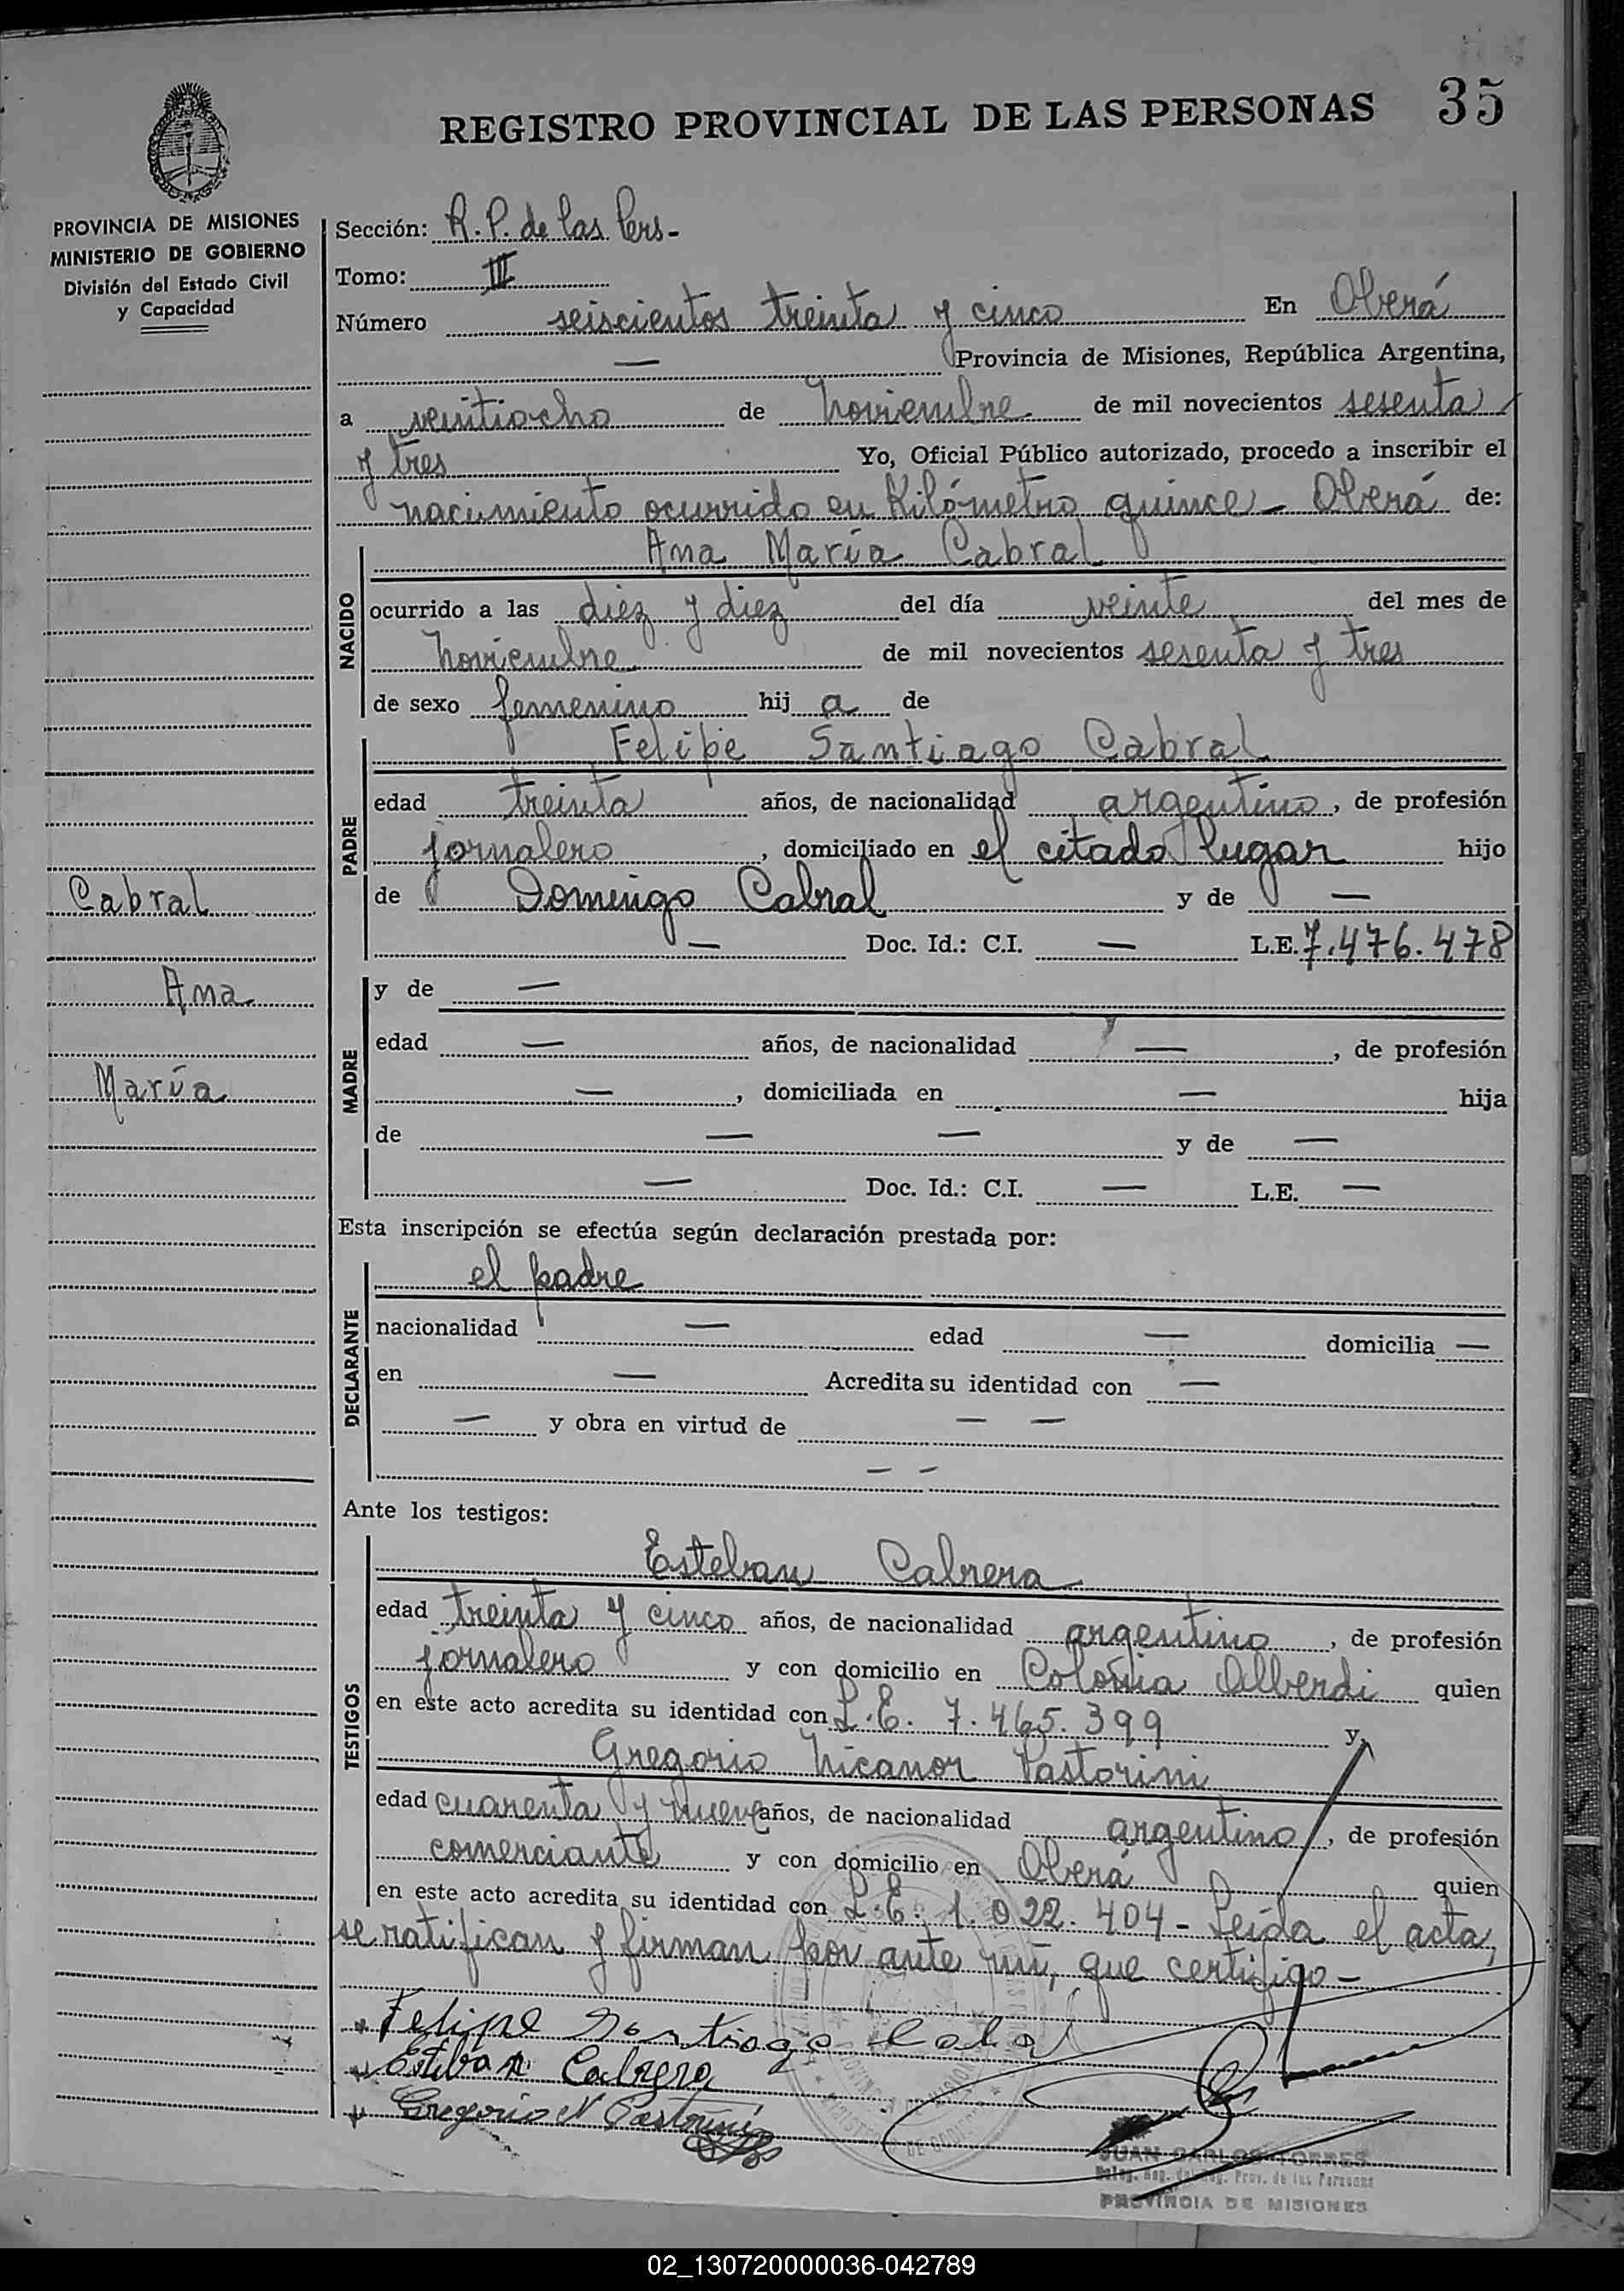 REGISTRO PROVINCIAL DE LAS PERSONAS 35
PROVINCIA DE MISIONES
MINISTERIO DE GOBIERNO
División del Estado Civil
y Capacidad
Cabral
Ana
María
Sección: R. P. de las Pers-
Tomo: III
Número seiscientos treinta y cinco En Oberá
— Provincia de Misiones, República Argentina,
a veintiocho de noviembre de mil novecientos sesenta
y tres Yo, Oficial Público autorizado, procedo a inscribir el
nacimiento ocurrido en Kilómetro quince - Oberá de:
NACIDO
Ana María Cabral
ocurrido a las diez y diez del día veinte del mes de
noviembre de mil novecientos sesenta y tres
de sexo femenino hij a de
PADRE
Felipe Santiago Cabral
edad treinta años, de nacionalidad argentino, de profesión
jornalero, domiciliado en el citado lugar hijo
de Domingo Cabral y de —
— Doc. Id.: C.I. — L.E. 7.476.478
MADRE
y de —
edad — años, de nacionalidad —, de profesión
—, domiciliada en — hija
de — — y de —
— Doc. Id.: C.I. — L.E. —
Esta inscripción se efectúa según declaración prestada por:
DECLARANTE
el padre
nacionalidad — edad — domicilia —
en — Acredita su identidad con —
— y obra en virtud de — —
— —
Ante los testigos:
TESTIGOS
Esteban Cabrera
edad treinta y cinco años, de nacionalidad argentino, de profesión
jornalero y con domicilio en Colonia Alberdi quien
en este acto acredita su identidad con L.E. 7.465.399 y
Gregorio Nicanor Pastorini
edad cuarenta y nueve años, de nacionalidad argentino, de profesión
comerciante y con domicilio en Oberá quien
en este acto acredita su identidad con L.E. 1.022.404 - Leída el acta,
se ratifican y firman por ante mí, que certifigo -
Felipe Santiago Cabral
Esteban Cabrera
Gregorio N Pastorini
JUAN CARLOS TORRES
Prov. de las Personas
PROVINCIA DE MISIONES
02_130720000036-042789